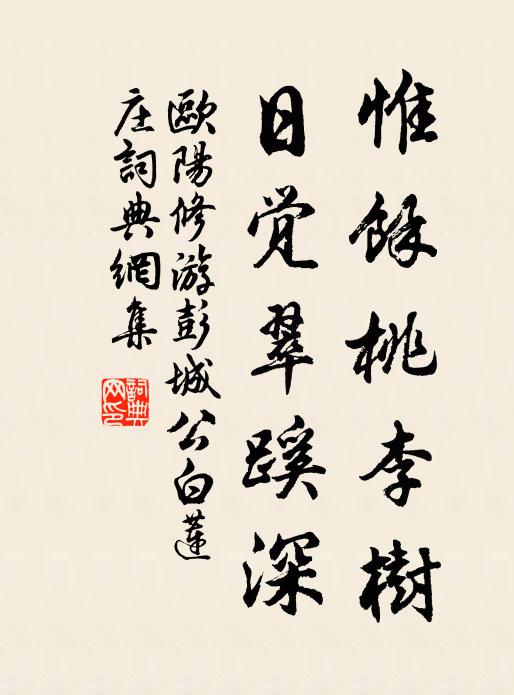 惟餘桃李樹
日觉翠蹊深
歐陽修游彭城公白蓮
庄詞典網集
詞典
网印